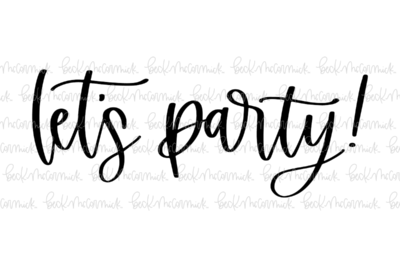 let's party!